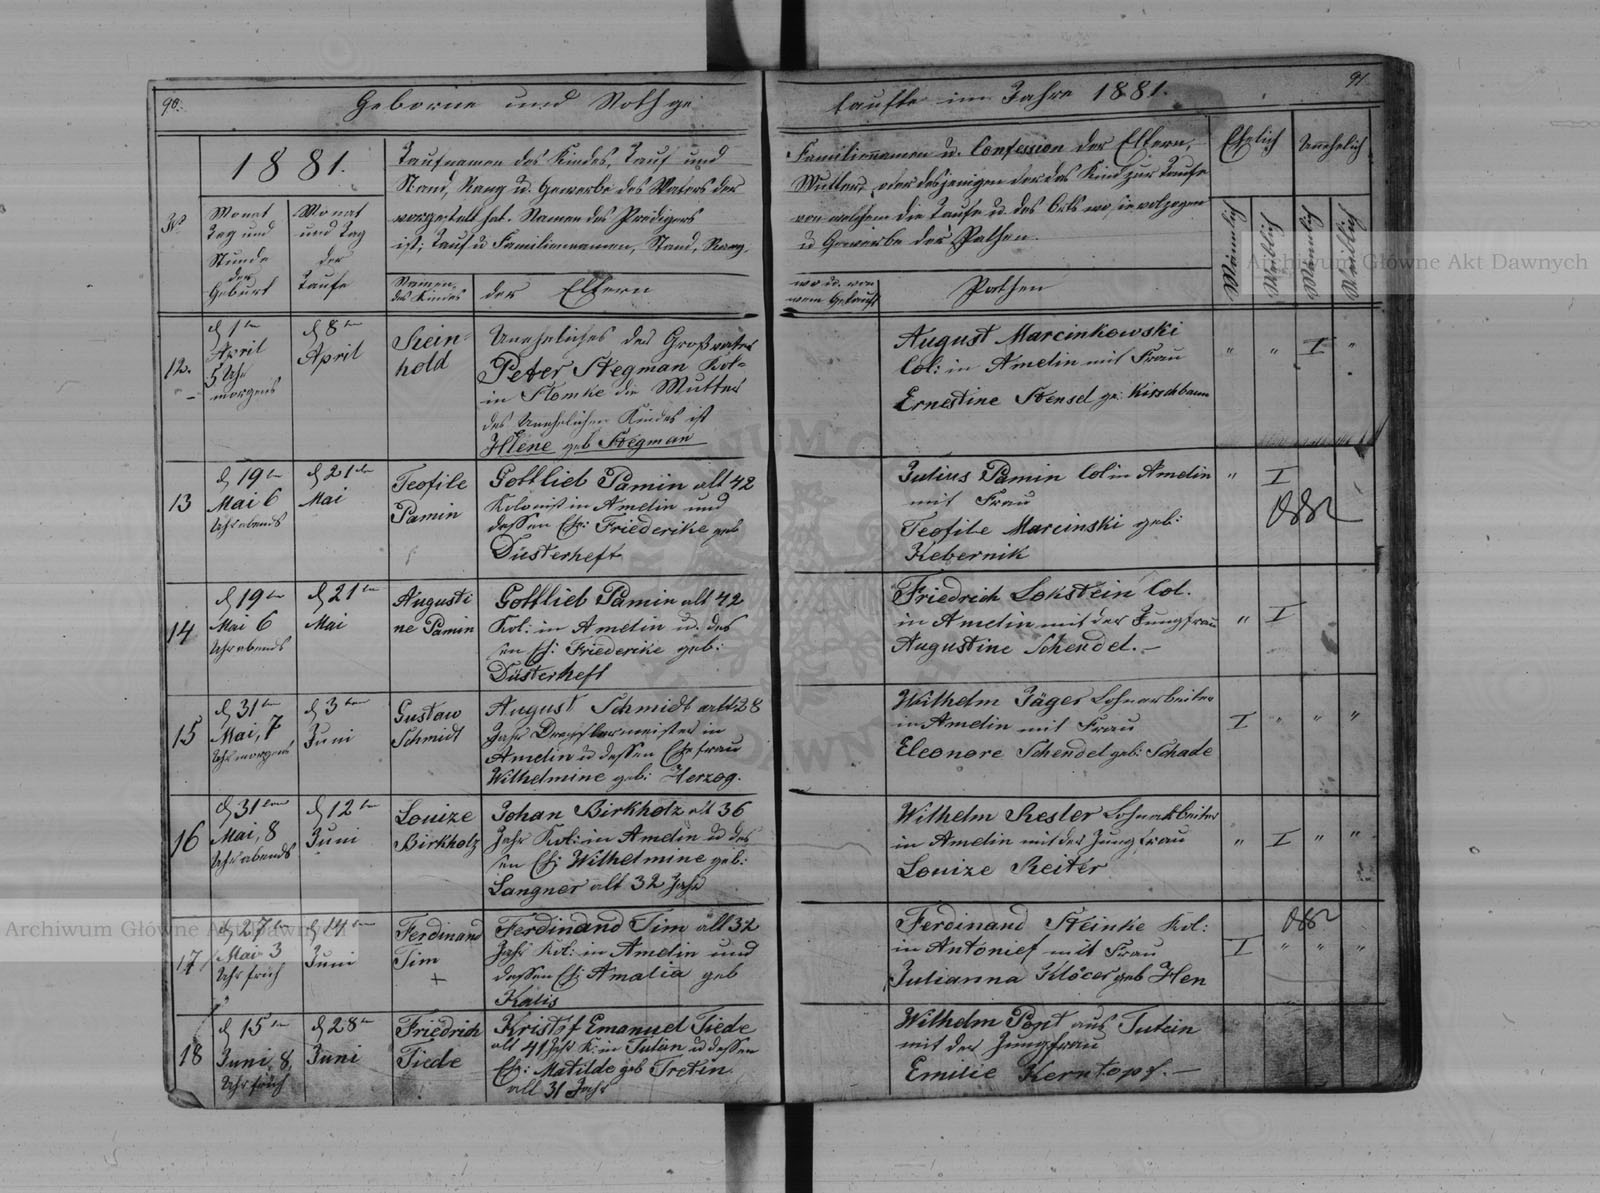 90.
Geborne und Nothge
1881.
Taufnamen des Kindes, Tauf und
Stand, Rang u. Gewerbe des Vaters der
vorgestelt hat. Namen des Predigers
ist; Tauf u Familiennamen, Stand, Rang,
No
Monat
Tag und
Stunde
der
Geburt
Monat
und Tag
der
Taufe
Namen
des Kindes
der Eltern
12.
d 1ten
April
5 Uhr
morgens
d 8ten
April
Rein-
hold
Unehrliches des Großvater
Peter Stegman Kol-
in Slomke die Mutter
des Unehrlichen Kindes ist
Hlene geb Stegman
13
d 19ten
Mai 6
Uhr abends
d 21ten
Mai
Teofile
Pamin
Gottlieb Pamin alt 42
Kolonist in Amelin und
dessen Eh: Friederike geb
Düsterheft
14
d 19ten
Mai 6
Uhr abends
d 21ten
Mai
Augusti
ne Pamin
Gottlieb Pamin alt 42
Kol: in Amelin u. des
sen Eh: Friederike geb:
Düsterheft
15
d 31ten
Mai, 7
Uhr morgens
d 3ten
Juni
Gustaw
Schmidt
August Schmidt alt 28
Jahr Drechslermeister in
Amelin u dessen Ehefrau
Wilhelmine geb: Herzog.
16
d 31ten
Mai, 8
Uhr abends
d 12ten
Juni
Louize
Birkholz
Johan Birkholz alt 36
Jahr Kol: in Amelin u des
sen Eh: Wilhelmine geb:
Langner alt 32 Jahr
17
d 27ten
Mai 3
Uhr früh
d 14ten
Juni
Ferdinand
Tim
+
Ferdinand Tim alt 32
Jahr Kol: in Amelin und
dessen Eh: Amalia geb
Kalis
18
d 15ten
Juni, 8,
Uhr früh
d 28ten
Juni
Friedrich
Tiede
Kristof Emanuel Tiede
alt 41 Jahr K: in Tulan u dessen
Eh: Matilde geb Tretin
alt 31 Jahr
91
taufte im Jahre 1881.
Familiennamen u. Confession der Eltern,
Mutter, oder desjenigen der das Kind zur Taufe
von welchem die Taufe u. des Orts wo sie volzogen
u Gewerbe der Pathen.
Ehelich
Unehelich
Männlich
Weiblich
Männlich
Weiblich
wo u. von
wem Getauft
Pathen
August Marcinkowski
Col: in Amelin mit Frau
Ernestine Stensel ge: Kirschbaum
" " I "
Julius Pamin Col in Amelin
mit Frau
Teofile Marcinski geb:
Hebernik
" I
Friedrich Lokstein Col.
in Amelin mit der Jungfrau
Augustine Schendel.—
" I
Wilhelm Jäger Lohnarbeiter
in Amelin mit Frau
Eleonore Schendel geb: Schade
I " " "
Wilhelm Resler Lohnarbeiter
in Amelin mit der Jungfrau
Louize Reiter
" I " "
Ferdinand Steinke Kol:
in Antonief mit Frau
Julianna Klócer geb Hen
I " " "
Wilhelm Pont aus Tulein
mit der Jungfrau
Emilie Kerntopf.—
Archiwum Główne Akt Dawnych
Archiwum Główne Akt Dawnych